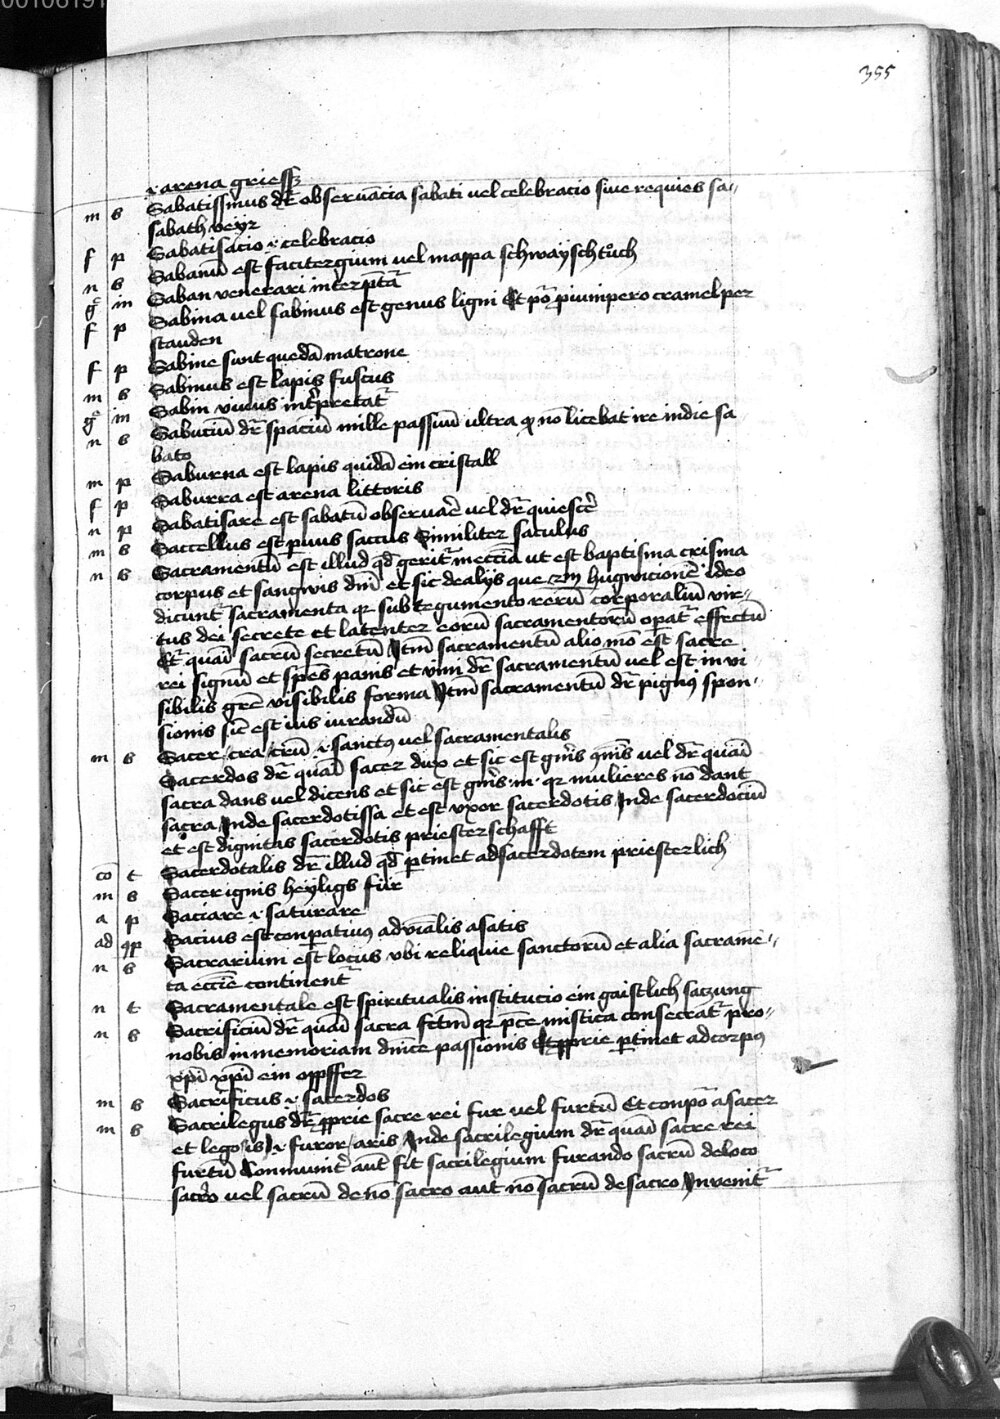 355
.i. arena griessz
m s Sabatissimus dr̄ obseruācia sabati vel celebracio siue requies sa-
sabath veyr
f p Sabatisacio .i. celebracio
n s Sabanū est facitergium vel mappa schwaysch tůch
gͤ in Saban venerari interp̄tāt
f p Sabina vel sabinus est genus ligni Et pō piunipero cramelper
stauden
f p Sabine sunt quedā matrone
m s Sabinus est lapis fuscus
gͤ in Sabin viuus int̄pretat̄
n s Sabuciū dr̄ spaciū mille passuū ultra qͦ nō licebat ire in die sa
bato
m p Saburna est lapis quidā ein cristall
f p Saburra est arena littoris
n p Sabatisare est sabatū obseruar̄e vel dr̄ quiesc̄e
m s Saccellus est p̄uus saccus Similiter saculus
n s Sacramentū est illud qd̄ gerit̄ in ecc̄ia ut est baptisma crisma
corpus et sangwis dn̄i et sic de alijs que sm̄ hugwicionē ideo
dicunt̄ sacramenta qr sub tegumento rerū corporaliū vir-
tus dei secrete et latenter eorū sacramentorū opat̄ effectū
Et̄ quasi sacrū secretū Itm̄ sacramentū alio mō est sacre
rei signū et spēs panis et vini dr̄ sacramentū vel est in vi
sibilis grē visibilis forma Itm̄ sacramentū dr̄ pignus spon-
sionis sīc est ius iurandū
m s Sacer/cra/crū .i. sanctus vel sacramentalis
Sacerdos dr̄ quasi sacer dux et sic est gn̄is om̄is vel dr̄ quasi
sacra dans vel dicens et sic est gn̄is .m. qr mulieres nō dant
sacra Inde sacerdotissa et est vxor sacerdotis Inde sacerdociū
et est dignitas sacerdotis priesterschafft
cō t Sacerdotalis dr̄ illud qd̄ p̄tinet ad sacerdotem priesterlich
m s Sacer ignis heyligs für
a p Saciare .i. saturare
ad qp Sacius est conp̄atiuus aduīalis a satis
n s Sacrarium est locus vbi reliquie sanctorū et alia sacramē-
ta ecc̄ie continent̄
n t Sacramentale est spiritualis institucio ein gaistlich saczung
n s Sacrificiū dr̄ quasi sacra fctm̄ qr p̄ce mistica consecrat̄ pro-
nobis in memoriam dn̄ice passionis Et pprie p̄tinet ad corpus
xp̄i xp̄i ein oppffer
m s Sacrificus .i. sacerdos
m s Sacrilegus dr̄ pprie sacre rei fur vel furtū Et conpō a sacer
et lego/is .i. furor/aris Inde sacrilegium dr̄ quasi sacre rei
furtū Communit̄ aut̄ fit sacrilegium furando sacrū de loco
sacro vel sacrū de nō sacro aut nō sacrū de sacro Inuenit̄